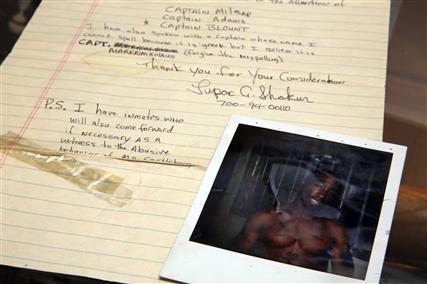 the Attention of
CAPTAIN MILSAP
CAPTAIN Adams
* CAPTAIN BLOUNT
I have also spoken with a Captain whose name I
cannot spell because it is greek but I believe it is
CAPT. MARKRNIKOLAUS (forgive the mispelling)
Thank You for Your Consideration
Tupac A. Shakur
700-941-00110
P.S. I have inmates who
will also come forward
if necessary as a
witness to the Abusive
behavior of Ms.